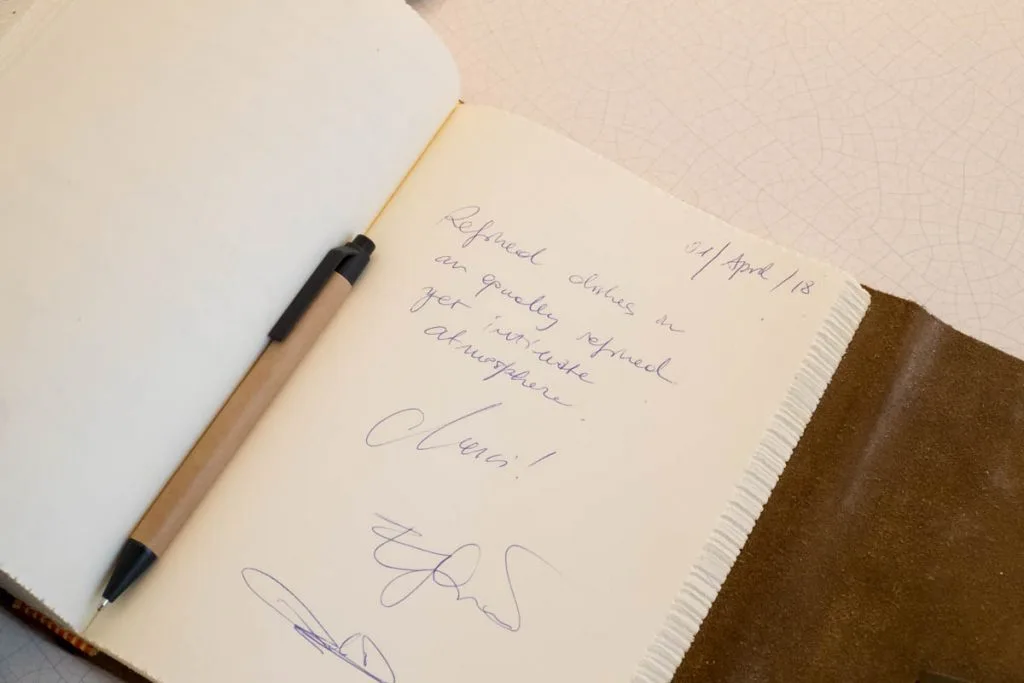 01/April/18
Refined dishes in
an equally refined
yet intimate
atmosphere.
Merci!